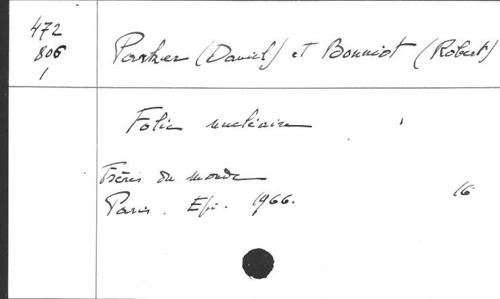 472
806
1
Parker (David) et Bonniot (Robert)
Folie nucléaire
Frères du monde
Paris. Epi. 1966. 16